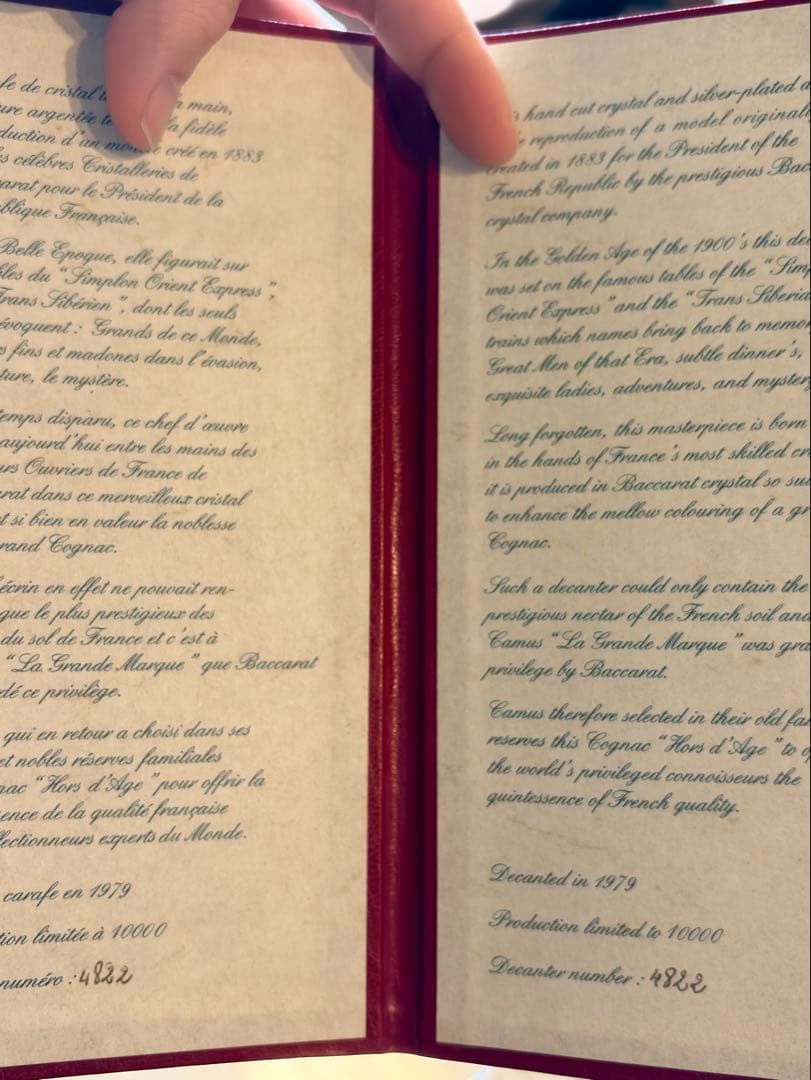 de cristal
main,
argentée
la fidèle
d'un créé en 1883
célèbres Cristalleries de
pour le Président de la
Française.
Belle Epoque, elle figurait sur
du "Simplon Orient Express",
Trans Sibérien", dont les seuls
évoquent : Grands de ce Monde,
fins et madones dans l'évasion,
le mystère.
temps disparu, ce chef d'œuvre
aujourd'hui entre les mains des
Ouvriers de France de
dans ce merveilleux cristal
si bien en valeur la noblesse
Cognac.
écrin en effet ne pouvait ren-
que le plus prestigieux des
du sol de France et c'est à
"La Grande Marque" que Baccarat
ce privilège.
qui en retour a choisi dans ses
et nobles réserves familiales
"Hors d'Age" pour offrir la
de la qualité française
experts du Monde.
carafe en 1979
limitée à 10000
numéro : 4822
hand cut crystal and silver-plated
reproduction of a model
created in 1883 for the President of the
French Republic by the prestigious
crystal company.
In the Golden Age of the 1900's this
was set on the famous tables of the
Orient Express" and the "Trans
trains which names bring back to
Great Men of that Era, subtle dinner's,
exquisite ladies, adventures, and
Long forgotten, this masterpiece is born
in the hands of France's most skilled
it is produced in Baccarat crystal so
to enhance the mellow colouring of a
Cognac.
Such a decanter could only contain the
prestigious nectar of the French soil and
Camus "La Grande Marque" was
privilege by Baccarat.
Camus therefore selected in their old
reserves this Cognac "Hors d'Age" to
the world's privileged connoisseurs the
quintessence of French quality.
Decanted in 1979
Production limited to 10000
Decanter number : 4822